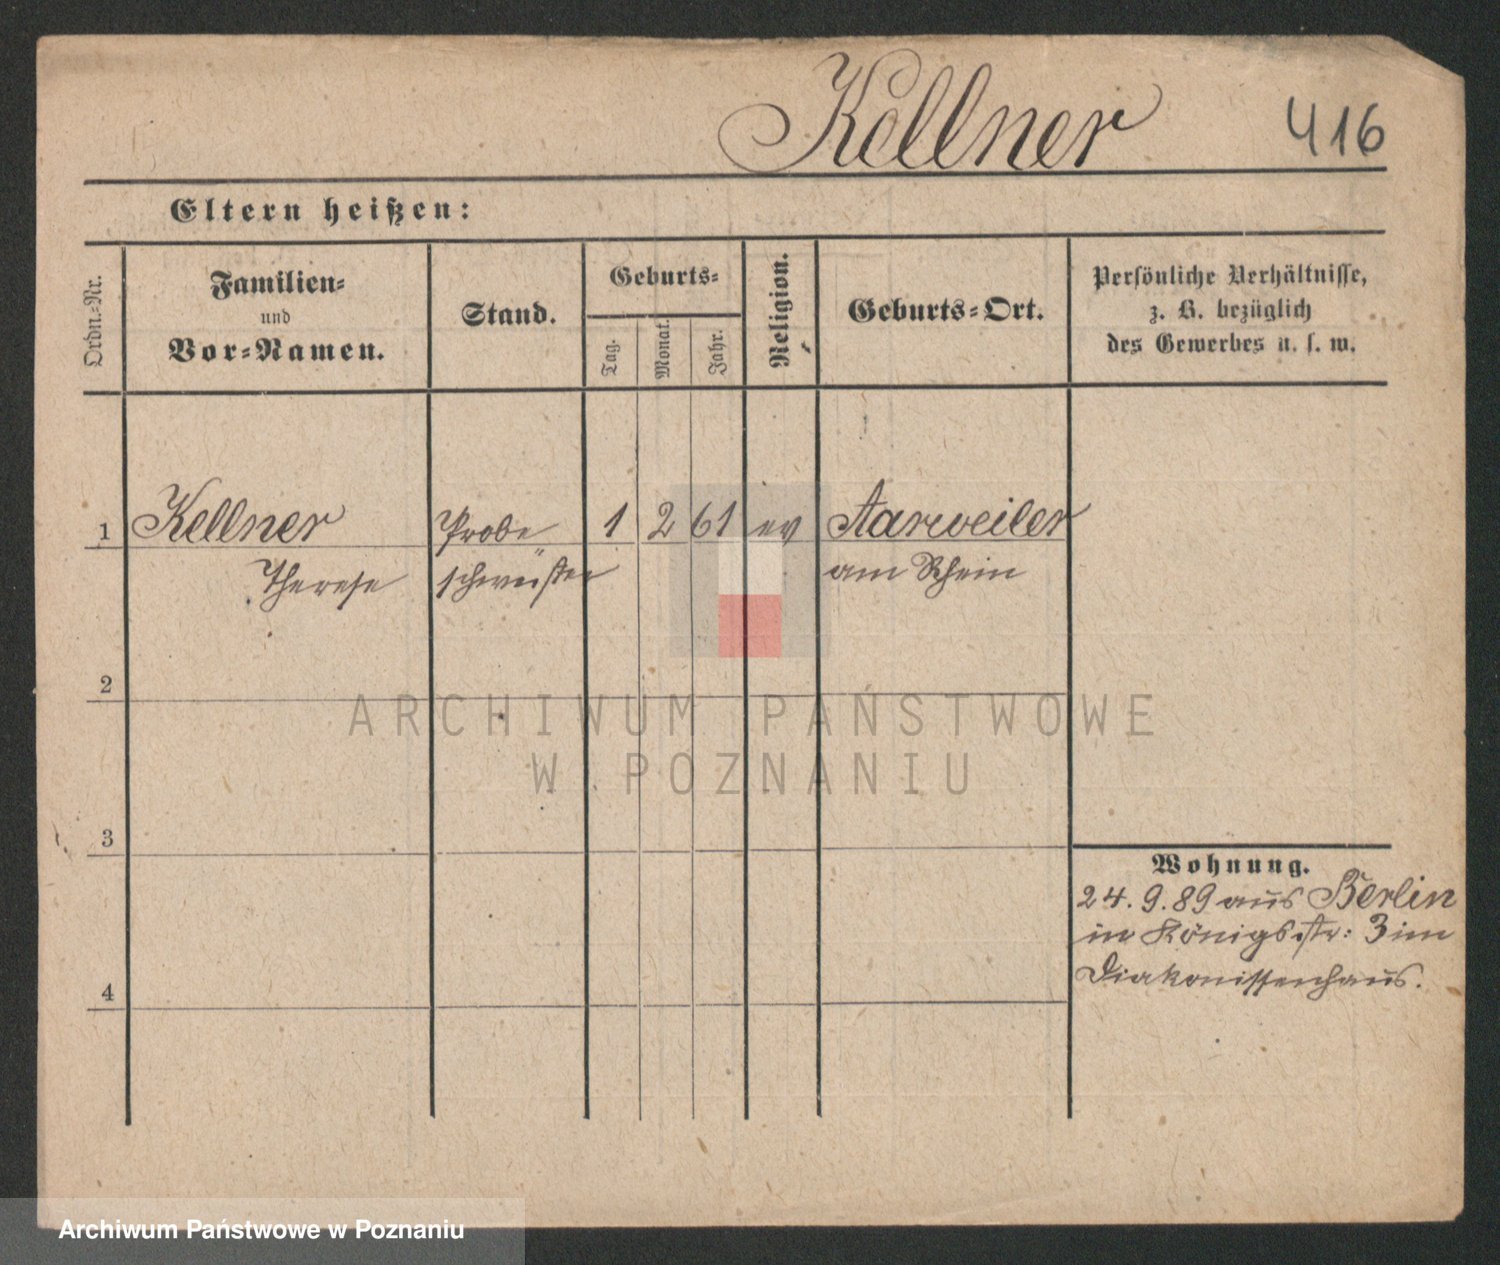 Kellner 416
Eltern heißen:
Ordn.-Nr.
Familien-
und
Vor-Namen.
Stand.
Geburts-
Tag.
Monat.
Jahr.
Religion.
Geburts-Ort.
Persönliche Verhältnisse,
z. B. bezüglich
des Gewerbes u. s. w.
1 Kellner Probe 1 2 61 ev Aarweiler
Therese schwester am Rhein
2
ARCHIWUM PAŃSTWOWE
W POZNANIU
3
Wohnung.
24. 9. 89 aus Berlin
in Königsstr: 3 im
Diakonissenhaus.
4
Archiwum Państwowe w Poznaniu